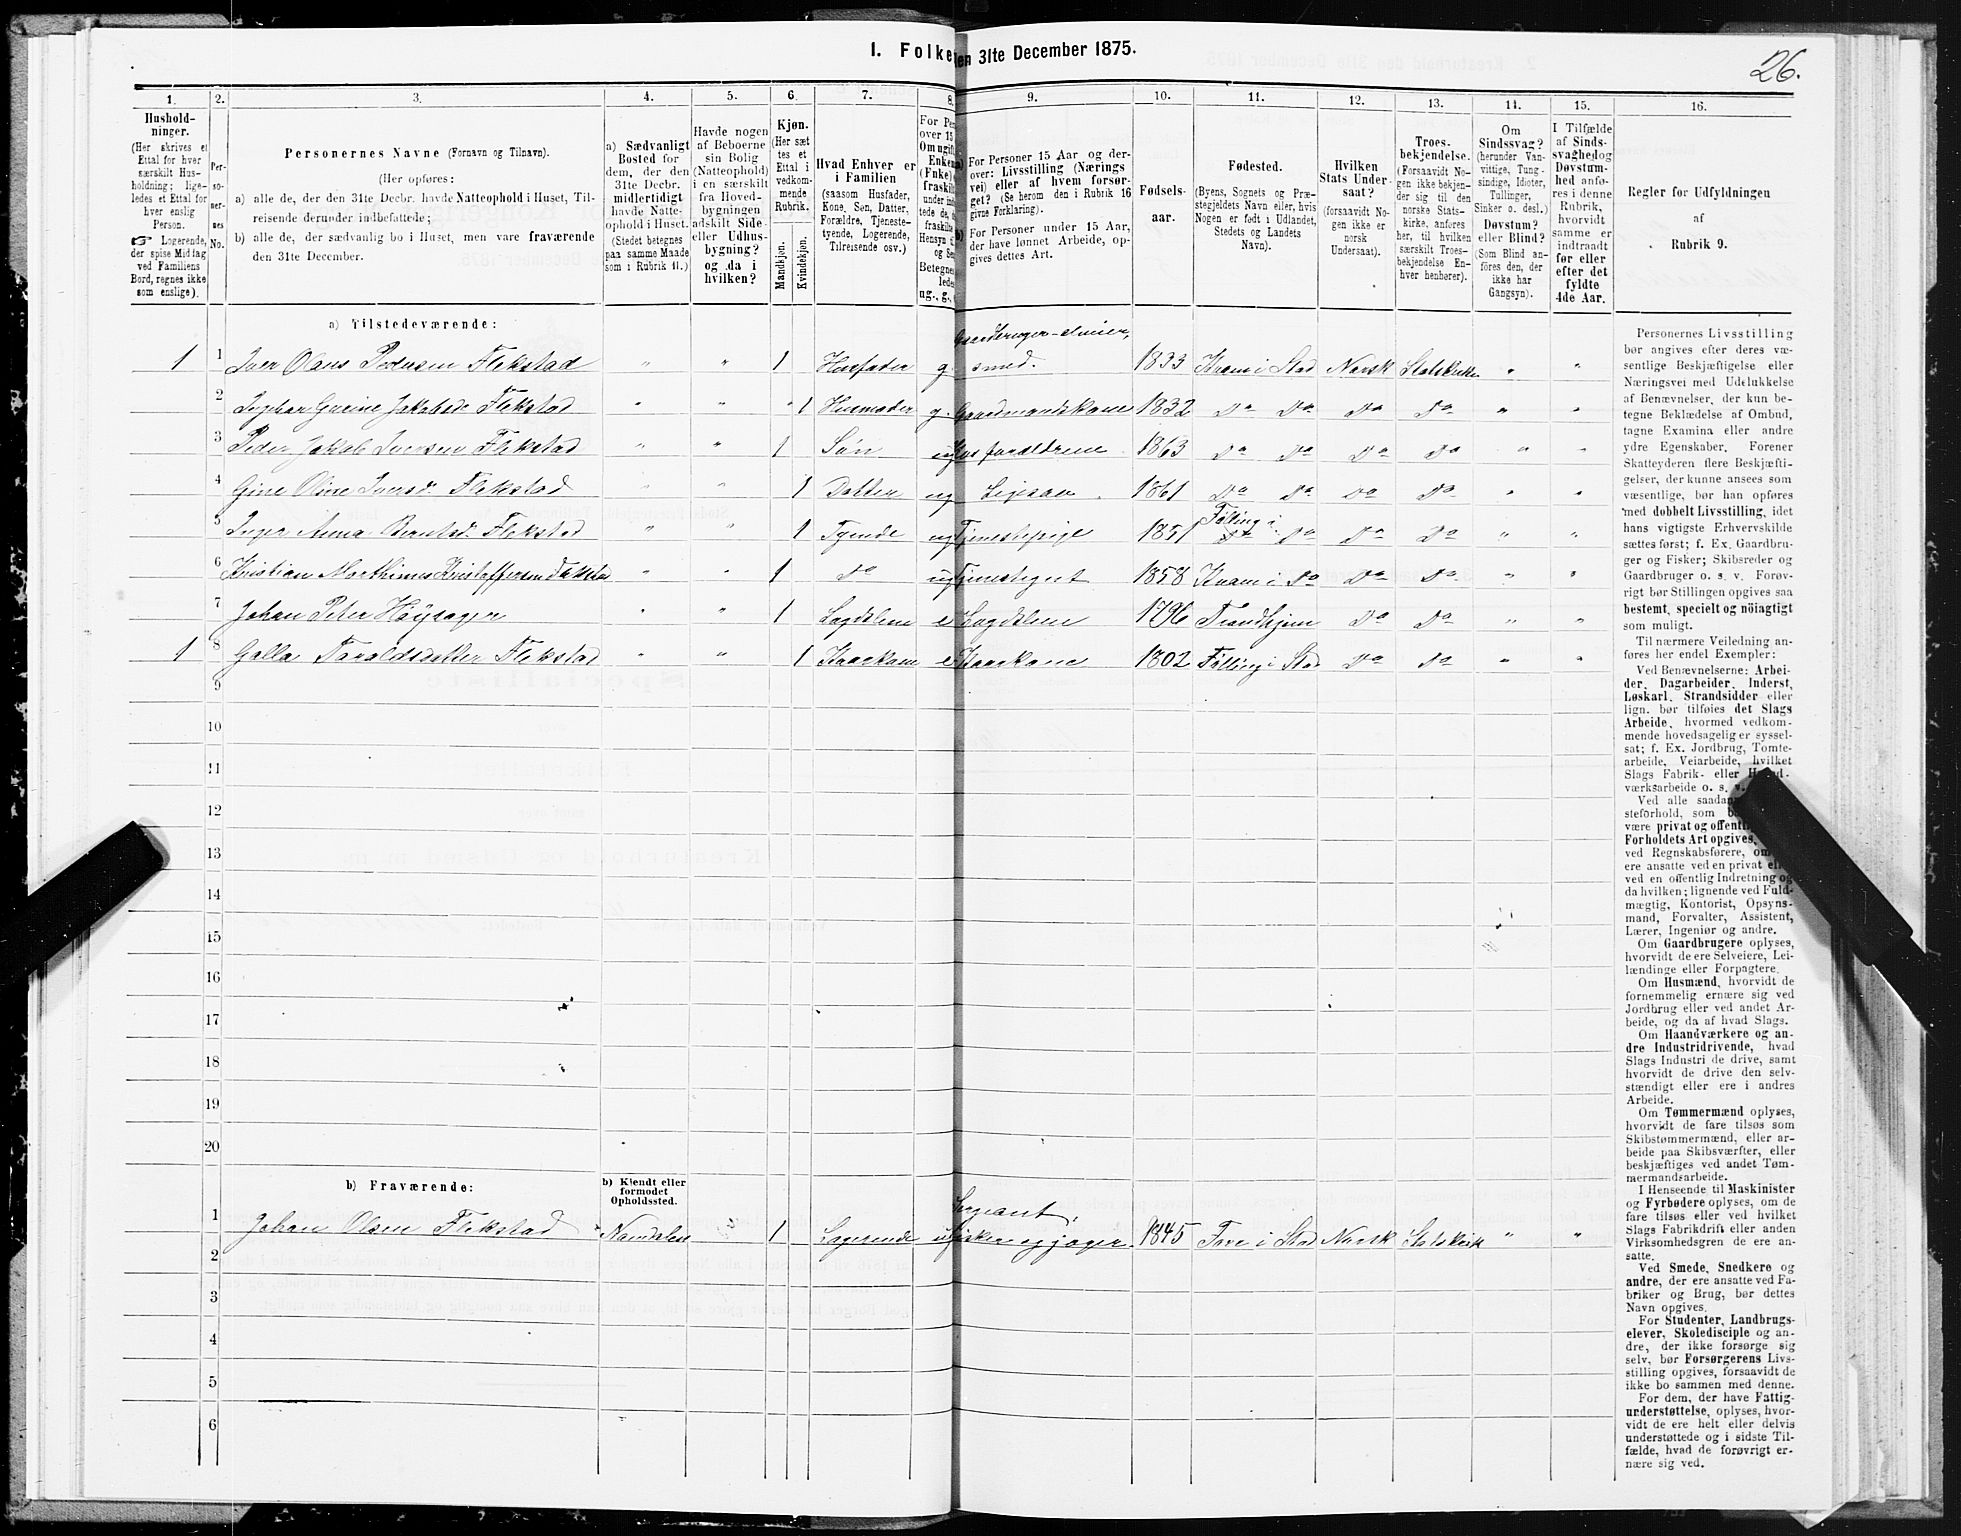 I. Folke en 31te December 1875.
26.
1.
2.
3.
4.
5.
6.
7.
8.
9.
10.
11.
12.
13.
14.
15.
16.
Hushold-
ninger.
(Her skrives et
Ettal for hver
særskilt Hus-
holdning; lige-
ledes et Ettal for
hver enslig
Person.
☞ Logerende,
der spise Middag
ved Familiens
Bord, regnes ikke
som enslige).
Per-
so-
ner-
nes
No.
Personernes Navne (Fornavn og Tilnavn).
(Her opføres:
a) alle de, der den 31te Decbr. havde Natteophold i Huset, Til-
reisende derunder indbefattede;
b) alle de, der sædvanlig bo i Huset, men vare fraværende
den 31te December.
a) Sædvanligt
Bosted for
dem, der den
31te Decbr.
midlertidigt
havde Natte-
ophold i Huset.
(Stedet betegnes
paa samme Maade
som i Rubrik 11.)
Havde nogen
af Beboerne
sin Bolig
(Natteophold)
i en særskilt
fra Hoved-
bygningen
adskilt Side-
eller Udhus-
bygning?
og da i
hvilken?
Kjøn.
(Her sæt-
tes et
Ettal i
vedkom-
mende
Rubrik.
Mandkjøn.
Kvindekjøn.
Hvad Enhver er
i Familien
(saasom Husfader,
Kone, Søn, Datter,
Forældre, Tjeneste-
tyende, Logerende,
Tilreisende osv.)
For Pe
over 15
Om ugift
Enke
(Fnke)
fraskil
under ind
tede de,
fraskilte
Hensyn t
og Se
Betegne
lede
ug., g.,
For Personer 15 Aar og der-
over: Livsstilling (Nærings
vei) eller af hvem forsør-
get? (Se herom den i Rubrik 16
givne Forklaring).
For Personer under 15 Aar,
der have lønnet Arbeide, op-
gives dettes Art.
Fødsels-
aar.
Fødested.
(Byens, Sognets og Præ-
stegjeldets Navn eller, hvis
Nogen er født i Udlandet,
Stedets og Landets
Navn).
Hvilken
Stats Under-
saat?
(forsaavidt No-
gen ikke er
norsk
Undersaat).
Troes-
bekjendelse.
(Forsaavidt No-
gen ikke bekjen-
der sig til den
norske Stats-
kirke, anføres
her, til hvilken
særskilt Troes-
bekjendelse En-
hver henhører).
Om
Sindssvag?
(herunder Van-
vittige, Tung-
sindige, Idioter,
Tullinger,
Sinker o. desl.)
Døvstum?
eller Blind?
(Som Blind an-
føres den, der
ikke har
Gangsyn).
I Tilfælde
af Sinds-
svaghed og
Døvstum-
hed anfø-
res i denne
Rubrik,
hvorvidt
samme er
indtraadt
før eller
efter det
fyldte
4de Aar.
Regler for Udfyldningen
af
Rubrik 9.
a) Tilstedeværende:
Gaardbruger-
1 1 Iver Olaus Pedersen Flekstad " " 1 Husfader g. smed. 1833 Kvam i Stod Norsk Statskirke " "
2 Flekstad " " 1 Husmoder g Gaardmandskone 1832 Do Do Do Do " "
3 Peder Jakob Iversen Flekstad " " 1 Søn ug forældrene 1863 Do Do Do Do " "
4 Gine Oline Iversd. Flekstad " " 1 Datter ug 1861 Do Do Do Do " "
Følling i
5 Inger Anna Berntsd. Flekstad " " 1 Tyende ug Tjenestepige 1851 Do Do Do Do " "
6 Kristian Marthinus Kristoffersen Flekstad " " 1 Do ug Tjenestegut 1858 Kvam i Do Do Do " "
7 Johan Peter Høysager " " 1 Lægdslem e Lægdslem 1796 Trondhjem Do Do " "
1 8 Golla Taraldsdatter Flekstad " " 1 Kaarkone e Kaarkone 1802 Følling i Stod Do Do " "
9
10
11
12
13
14
15
16
17
18
19
20
b) Fraværende:
b) Kjendt eller
formodet
Opholdssted.
Sergeant,
1 Johan Olsen Flekstad Namdalen 1 Logerende fisker og jæger 1845 For i Stod Norsk Statskirk " "
2
3
4
5
6
Personernes Livsstilling
bør angives efter deres væ-
sentlige Beskjæftigelse eller
Næringsvei med Udelukkelse
af Benævnelser, der kun be-
tegne Beklædelse af Ombud,
tagne Examina eller andre
ydre Egenskaber. Forener
Skatteyderen flere Beskjæfti-
gelser, der kunne ansees som
væsentlige, bør han opføres
med dobbelt Livsstilling, idet
hans vigtigste Erhvervskilde
sættes først; f. Ex. Gaardbru-
ger og Fisker; Skibsreder og
Gaardbruger o. s. v. Forøv-
rigt bør Stillingen opgives saa
bestemt, specielt og nöiagtigt
som muligt.
Til nærmere Veiledning an-
føres her endel Exempler:
Ved Benævnelserne: Arbei-
der, Dagarbeider, Inderst,
Løskarl, Strandsidder eller
lign. bør tilføies det Slags
Arbeide, hvormed vedkom-
mende hovedsagelig er syssel-
sat; f. Ex. Jordbrug, Tomte-
arbeide, Veiarbeide, hvilket
Slags Fabrik- eller Haand-
værksarbeide o. s. v.
Ved alle saadan
steforhold, som
være privat og offentli
Forholdets Art opgives,
ved Regnskabsførere, om
ere ansatte ved en privat el
ved en offentlig Indretning og
da hvilken; lignende ved Fuld-
mægtig, Kontorist, Opsyns-
mand, Forvalter, Assistent,
Lærer, Ingeniør og andre.
Om Gaardbrugere oplyses,
hvorvidt de ere Selveiere, Lei-
lændinge eller Forpagtere.
Om Husmænd, hvorvidt de
fornemmelig ernære sig ved
Jordbrug eller ved andet Ar-
beide, og da af hvad Slags.
Om Haandværkere og an-
dre Industridrivende, hvad
Slags Industri de drive, samt
hvorvidt de drive den selv-
stændigt eller ere i andres
Arbeide.
Om Tømmermænd oplyses,
hvorvidt de fare tilsøs som
Skibstømmermænd, eller ar-
beide paa Skibsværfter, eller
beskjæftiges ved andet Tøm-
mermandsarbeide.
I Henseende til Maskinister
og Fyrbødere oplyses, om de
fare tilsøs eller ved hvilket
Slags Fabrikdrift eller anden
Virksomhedsgren de ere an-
satte.
Ved Smede, Snedkere og
andre, der ere ansatte ved Fa-
briker og Brug, bør dettes
Navn opgives.
For Studenter, Landbrugs-
elever, Skoledisciple og an-
dre, der ikke forsørge sig
selv, bør Forsørgerens Livs-
stilling opgives, forsaavidt de
ikke bo sammen med denne.
For dem, der have Fattig-
understøttelse, oplyses, hvor-
vidt de ere helt eller delvis
understøttede og i sidste Til-
fælde, hvad de forøvrigt er-
nære sig ved.